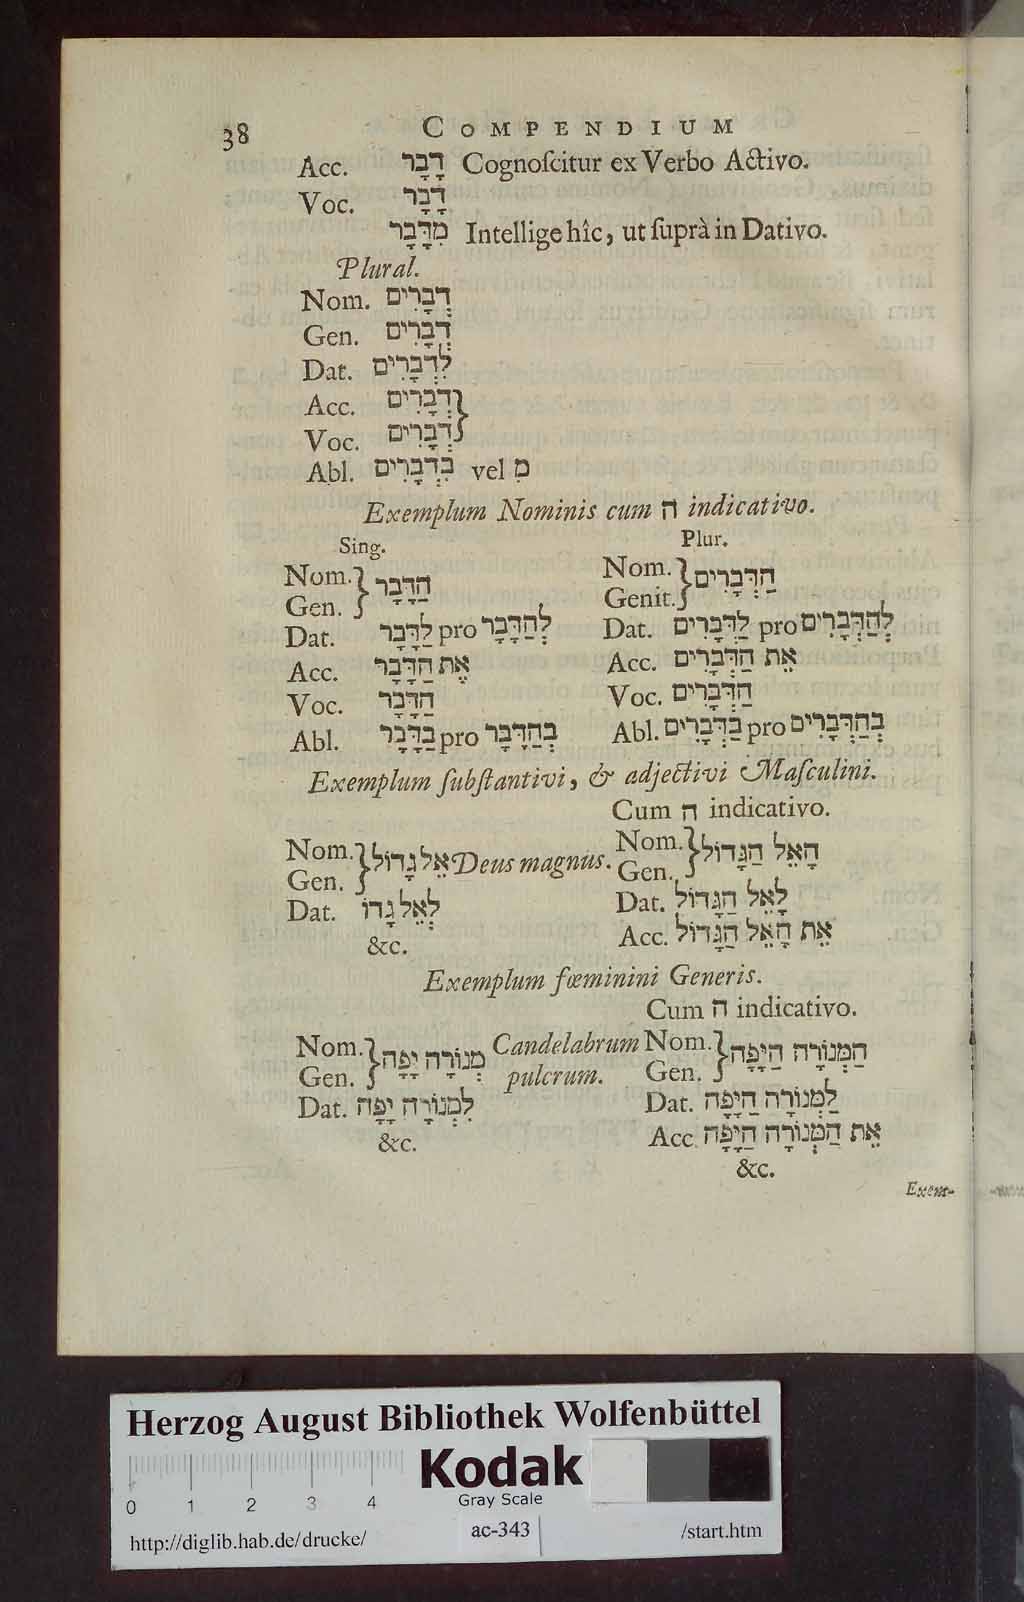 38 COMPENDIUM
Acc. דָּבָר Cognoſcitur ex Verbo Activo.
Voc. דָּבָר
מִדָּבָר Intellige hîc, ut ſuprà in Dativo.
Plural.
Nom. דְּבָרִים
Gen. דְּבָרִים
Dat. לִדְבָרִים
Acc. דְּבָרִים}
Voc. דְּבָרִים
Abl. בִּדְבָרִים vel מִ
Exemplum Nominis cum ה indicativo.
Sing.
Nom.} הַדָּבָר
Gen.
Dat. לַדָּבָר pro לְהַדָּבָר
Acc. אֶת הַדָּבָר
Voc. הַדָּבָר
Abl. בַּדָּבָר pro בְּהַדָּבָר
Plur.
Nom.} הַדְּבָרִים
Genit.
Dat. לַדְּבָרִים pro לְהַדְּבָרִים
Acc. אֵת הַדְּבָרִים
Voc. הַדְּבָרִים
Abl. בַּדְּבָרִים pro בְּהַדְּבָרִים
Exemplum ſubſtantivi, & adjectivi Maſculini.
Nom.} אֵל גָּדוֹל Deus magnus.
Gen.
Dat. לְאֵל גָּדוֹ
&c.
Cum ה indicativo.
Nom.} הָאֵל הַגָּדוֹל
Gen.
Dat. לָאֵל הַגָּדוֹל
Acc. אֵת הָאֵל הַגָּדוֹל
Exemplum fœminini Generis.
Nom.} מְנוֹרָה יָפָה Candelabrum
Gen. pulcrum.
Dat. לִמְנוֹרָה יָפָה
&c.
Cum ה indicativo.
Nom.} הַמְּנוֹרָה הַיָּפָה
Gen.
Dat. לַמְּנוֹרָה הַיָּפָה
Acc אֵת הַמְּנוֹרָה הַיָּפָה
&c.
Exem-
Herzog August Bibliothek Wolfenbüttel
Kodak
Gray Scale
0 1 2 3 4
http://diglib.hab.de/drucke/ ac-343 /start.htm